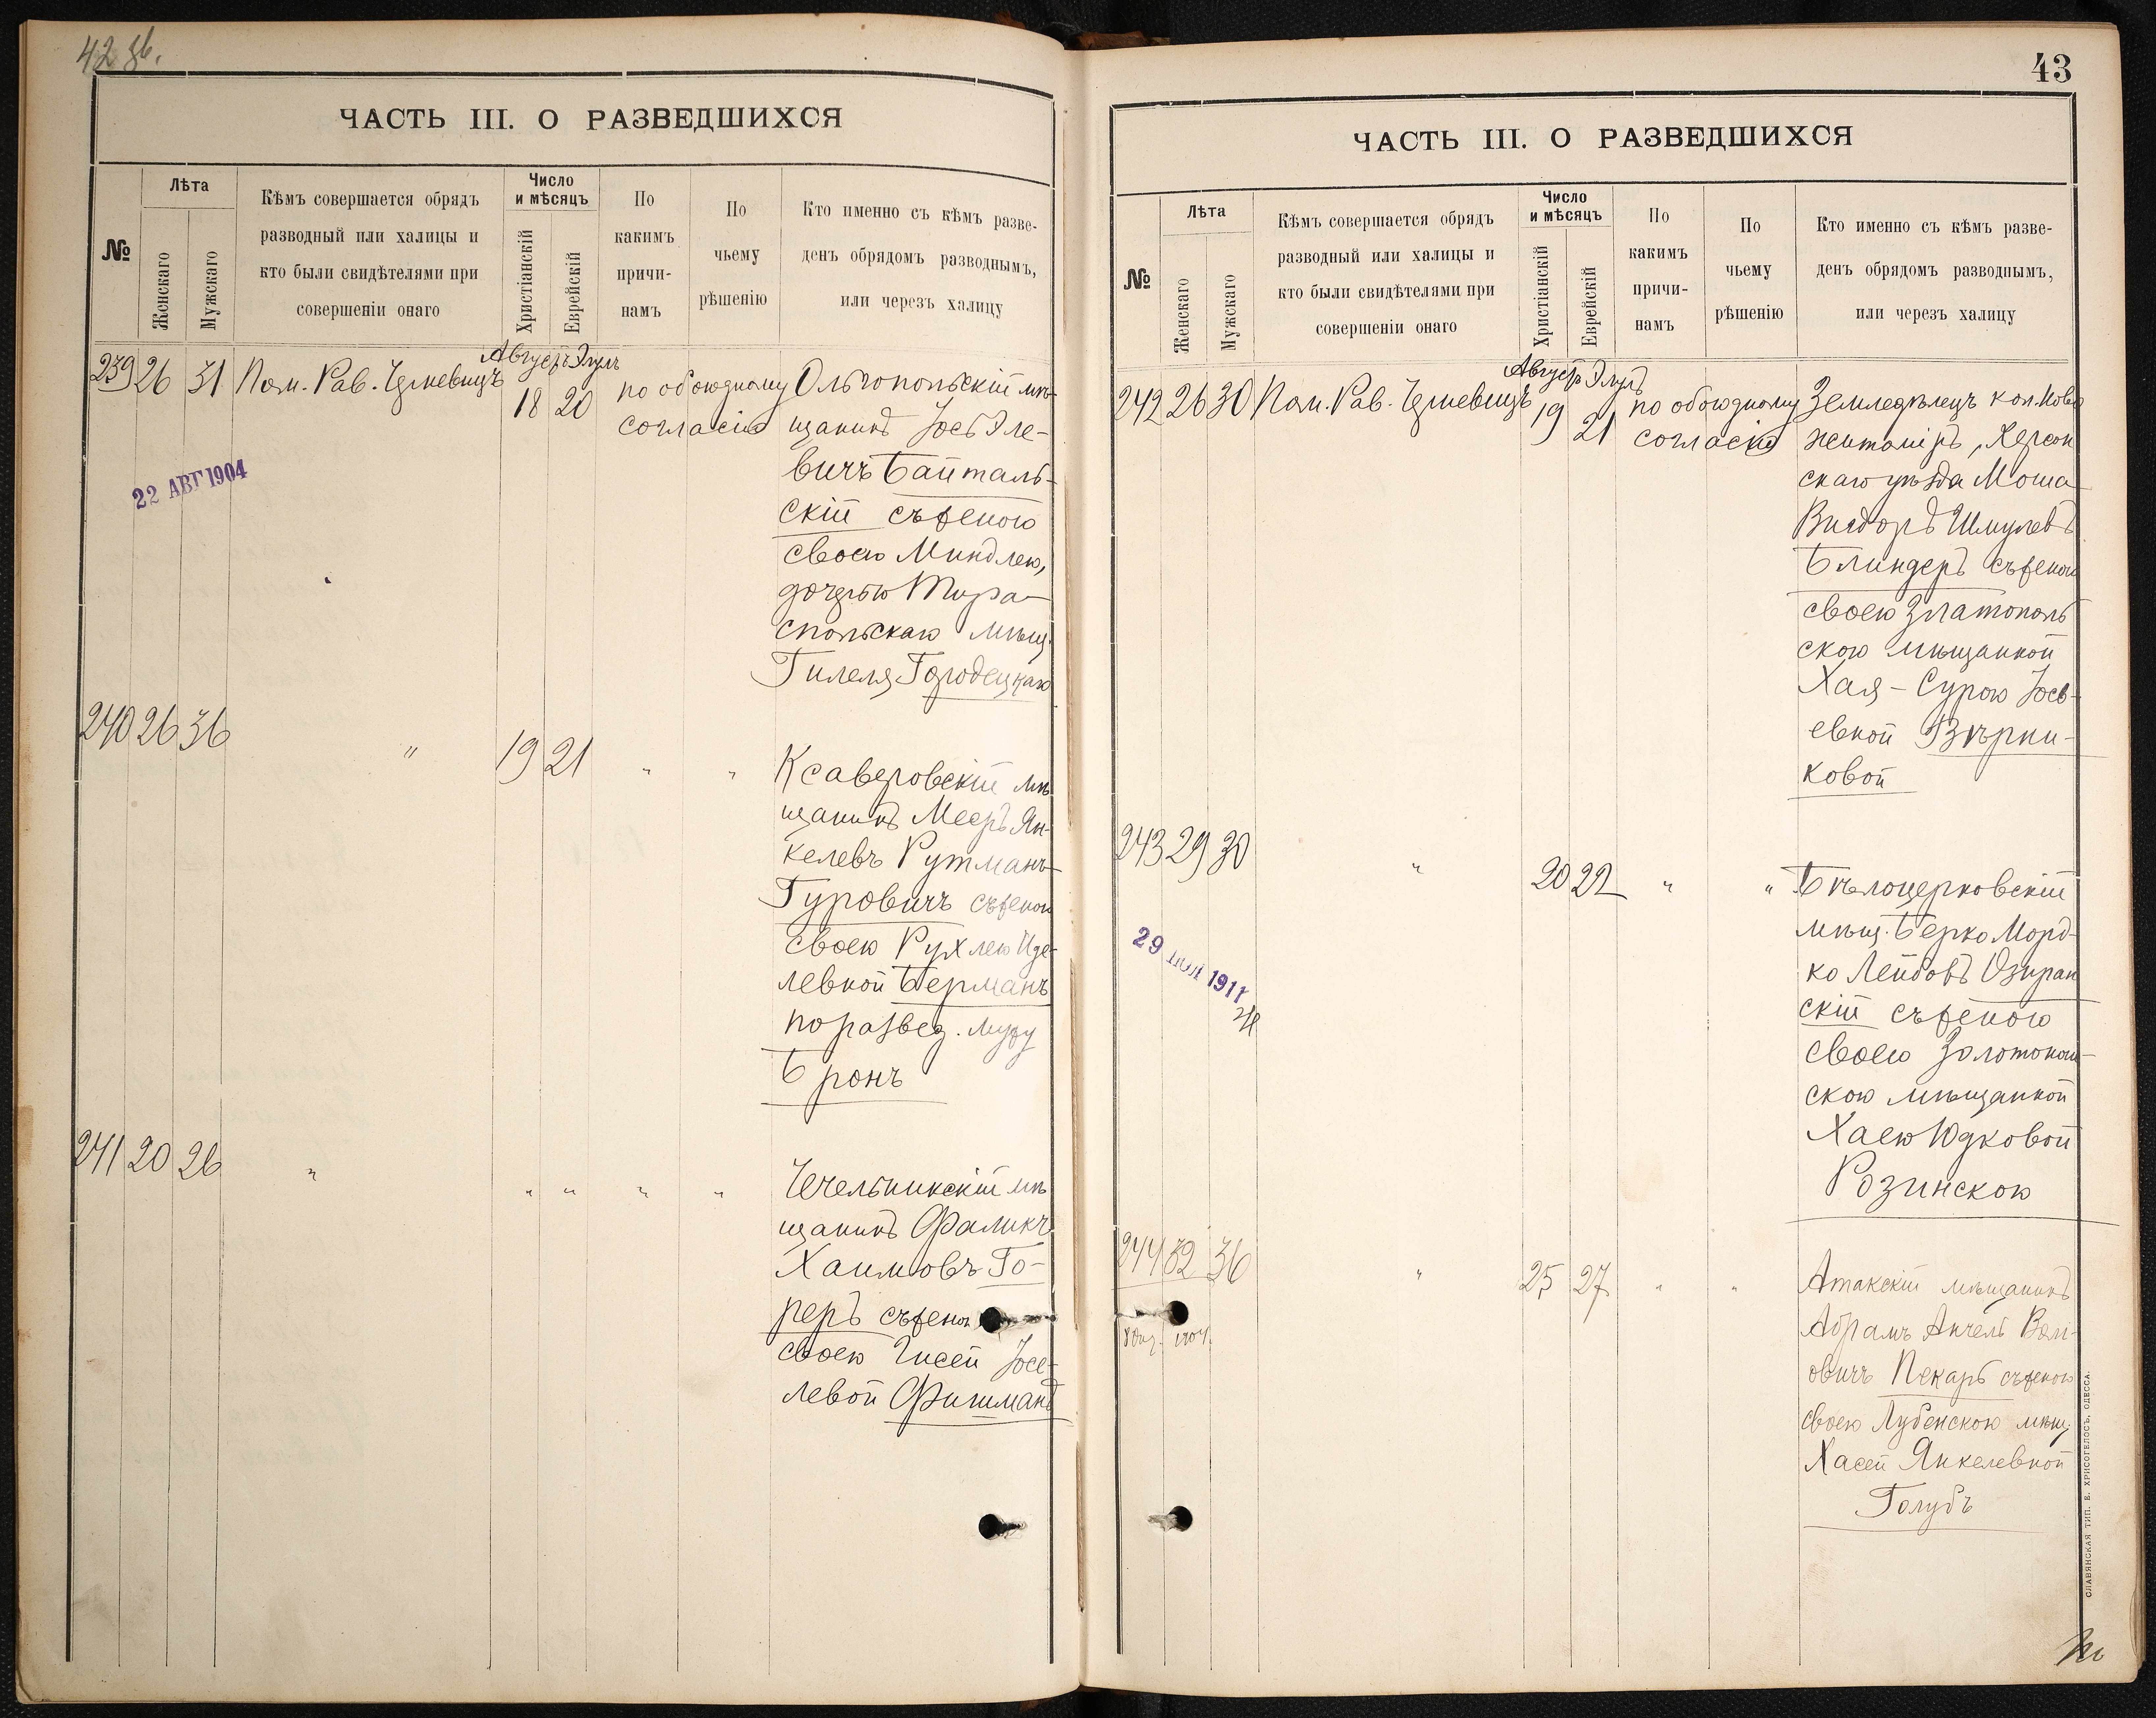 42 зв.
ЧАСТЬ III. О РАЗВЕДШИХСЯ
№
Лѣта
Женскаго
Мужскаго
Кѣмъ совершается обрядъ
разводный или халицы и
кто были свидѣтелями при
совершеніи онаго
Число
и мѣсяцъ
Христіанскій
Еврейскій
По
какимъ
причи-
намъ
По
чьему
рѣшенію
Кто именно съ кѣмъ разве-
денъ обрядомъ разводнымъ,
или черезъ халицу
239 26 31 Пом. Рав.
Августъ Элулъ
18 20
по обоюдному
согласію
Ольгопольскій мѣ-
щанинъ Іось Эле-
вичъ Байталь-
скій съ женою
своею Миндлею,
дочерью Тира-
спольскаго мѣщ.
Гилеля Городецкаго
22 АВГ 1904
240 26 36 " 19 21 " "
Ксаверовскій мѣ
щанинъ Мееръ Ян-
келевъ Рутманъ-
Гуровичъ съ женою
своею Рухлею Иде-
левной Берманъ
по развед. мужу
Бронъ
241 20 26 " " " " "
Чечельникскій мѣ
щанинъ Фаликъ
Хаимовъ Го-
реръ съ женою
своею Гисей Іосе-
левой Фишманъ
43
ЧАСТЬ III. О РАЗВЕДШИХСЯ
№
Лѣта
Женскаго
Мужскаго
Кѣмъ совершается обрядъ
разводный или халицы и
кто были свидѣтелями при
совершеніи онаго
Число
и мѣсяцъ
Христіанскій
Еврейскій
По
какимъ
причи-
намъ
По
чьему
рѣшенію
Кто именно съ кѣмъ разве-
денъ обрядомъ разводнымъ,
или черезъ халицу
242 26 30 Пом. Рав.
Августъ Элулъ
19 21
по обоюдному
согласію
Земледѣлецъ кол. Ново
житоміръ, Херсон
скаго уѣзда Моша
Вигдоръ Шмулевъ
Блиндеръ съ женою
своею Златополь
скою мѣщанкой
Хая-Сурою Іось-
евной Вѣрни-
ковой
243 29 30 " 20 22 " "
Бѣлоцерковскій
мѣщ. Берко Морд-
ко Лейбовъ Озиран
скій съ женою
своею Золотонош-
скою мѣщанкой
Хаею Юдковой
Розинскою
29 ІЮЛ 1911
244 32 36 " 25 27 " "
Атакскій мѣщанинъ
Абрамъ Анчель Вол-
овичъ Пекарь съ женою
своею Лубенскою мѣщ.
Хасей Янкелевной
Голубъ
1904.
СЛАВЯНСКАЯ ТИП. Е. ХРИСОГЕЛОСЪ, ОДЕССА.